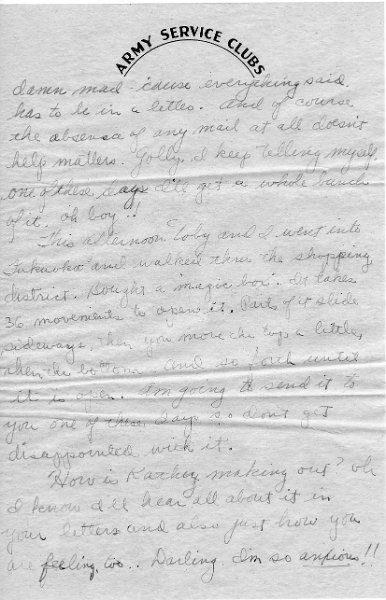 ARMY SERVICE CLUBS
damn mail - 'cause everything said
has to be in a letter. And of course
the absence of any mail at all doesn't
help matters. Golly, I keep telling myself
one of these days I'll get a whole bunch
of it. oh boy..!
This afternoon Toby and I went into
Fukuoka and walked thru the shopping
district. Bought a "magic box". It takes
36 movements to open it. Part of it slide
sideways, then you move the top a little,
then the bottom and so forth until
it is open. I'm going to send it to
you one of these days so don't get
disappointed with it.
How is Kathy making out? oh
I know I'll hear all about it in
your letters and also just how you
are feeling, too.. Darling, I'm so anxious!!